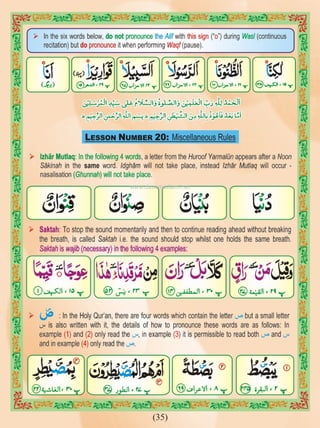 ➢ In the six words below, do not pronounce the Alif with this sign ("o") during Wasl (continuous
recitation) but do pronounce it when performing Waqf (pause).
اَنَا
قَوَارِيْرَا۟
اَلسَّبِيْلَا۟
اَلرَّسُوْلَا۟
اَلظُّنُوْنَا۟
لٰكِنَّا۟
اَلْحَمْدُ لِلّٰهِ رَبِّ الْعٰلَمِيْنَ وَالصَّلٰوةُ وَالسَّلَامُ عَلٰى سَيِّدِ الْمُرْسَلِيْنَ
اَمَّا بَعْدُ فَاَعُوْذُ بِاللّٰهِ مِنَ الشَّيْطٰنِ الرَّجِيْمِ ۞ بِسْمِ اللّٰهِ الرَّحْمٰنِ الرَّحِيْمِ ۞
LESSON NUMBER 20: Miscellaneous Rules
➢ Izhār Mutlaq: In the following 4 words, a letter from the Huroof Yarmalūn appears after a Noon
Sākinah in the same word. Idghām will not take place, instead Izhār Mutlaq will occur -
nasalisation (Ghunnah) will not take place.
دُنْيَا
بُنْيَانٌ
صِنْوَانٌ
قِنْوَانٌ
➢ Saktah: To stop the sound momentarily and then to continue reading ahead without breaking
the breath, is called Saktah i.e. the sound should stop whilst one holds the same breath.
Saktah is wajib (necessary) in the following 4 examples:
وَقِيْلَ مَنْ رَاقٍ
كَلَّا بَلْ رَانَ
مِنْ مَّرْقَدِنَا هٰذَا
عِوَجًا قَيِّمًا
پ ٢٩ ، القيمة
پ ٣٠ ، المطففين
پ ٢٣ ، يٰسٓ
پ ١٥ ، الكهف
➢ ص : In the Holy Qur'an, there are four words which contain the letter ص but a small letter
س is also written with it, the details of how to pronounce these words are as follows: In
example (1) and (2) only read the س, in example (3) it is permissible to read both ص and س
and in example (4) only read the ص.
يَبْصُۜطُ
بَصْۜطَةً
اَمْ هُمُ الْمُصَۜيْطِرُوْنَ
بِمُصَۜيْطِرٍ
پ ٢ ، البقرة
پ ٨ ، الاعراف
پ ٢٧ ، الطور
پ ٣٠ ، الغاشية
(35)